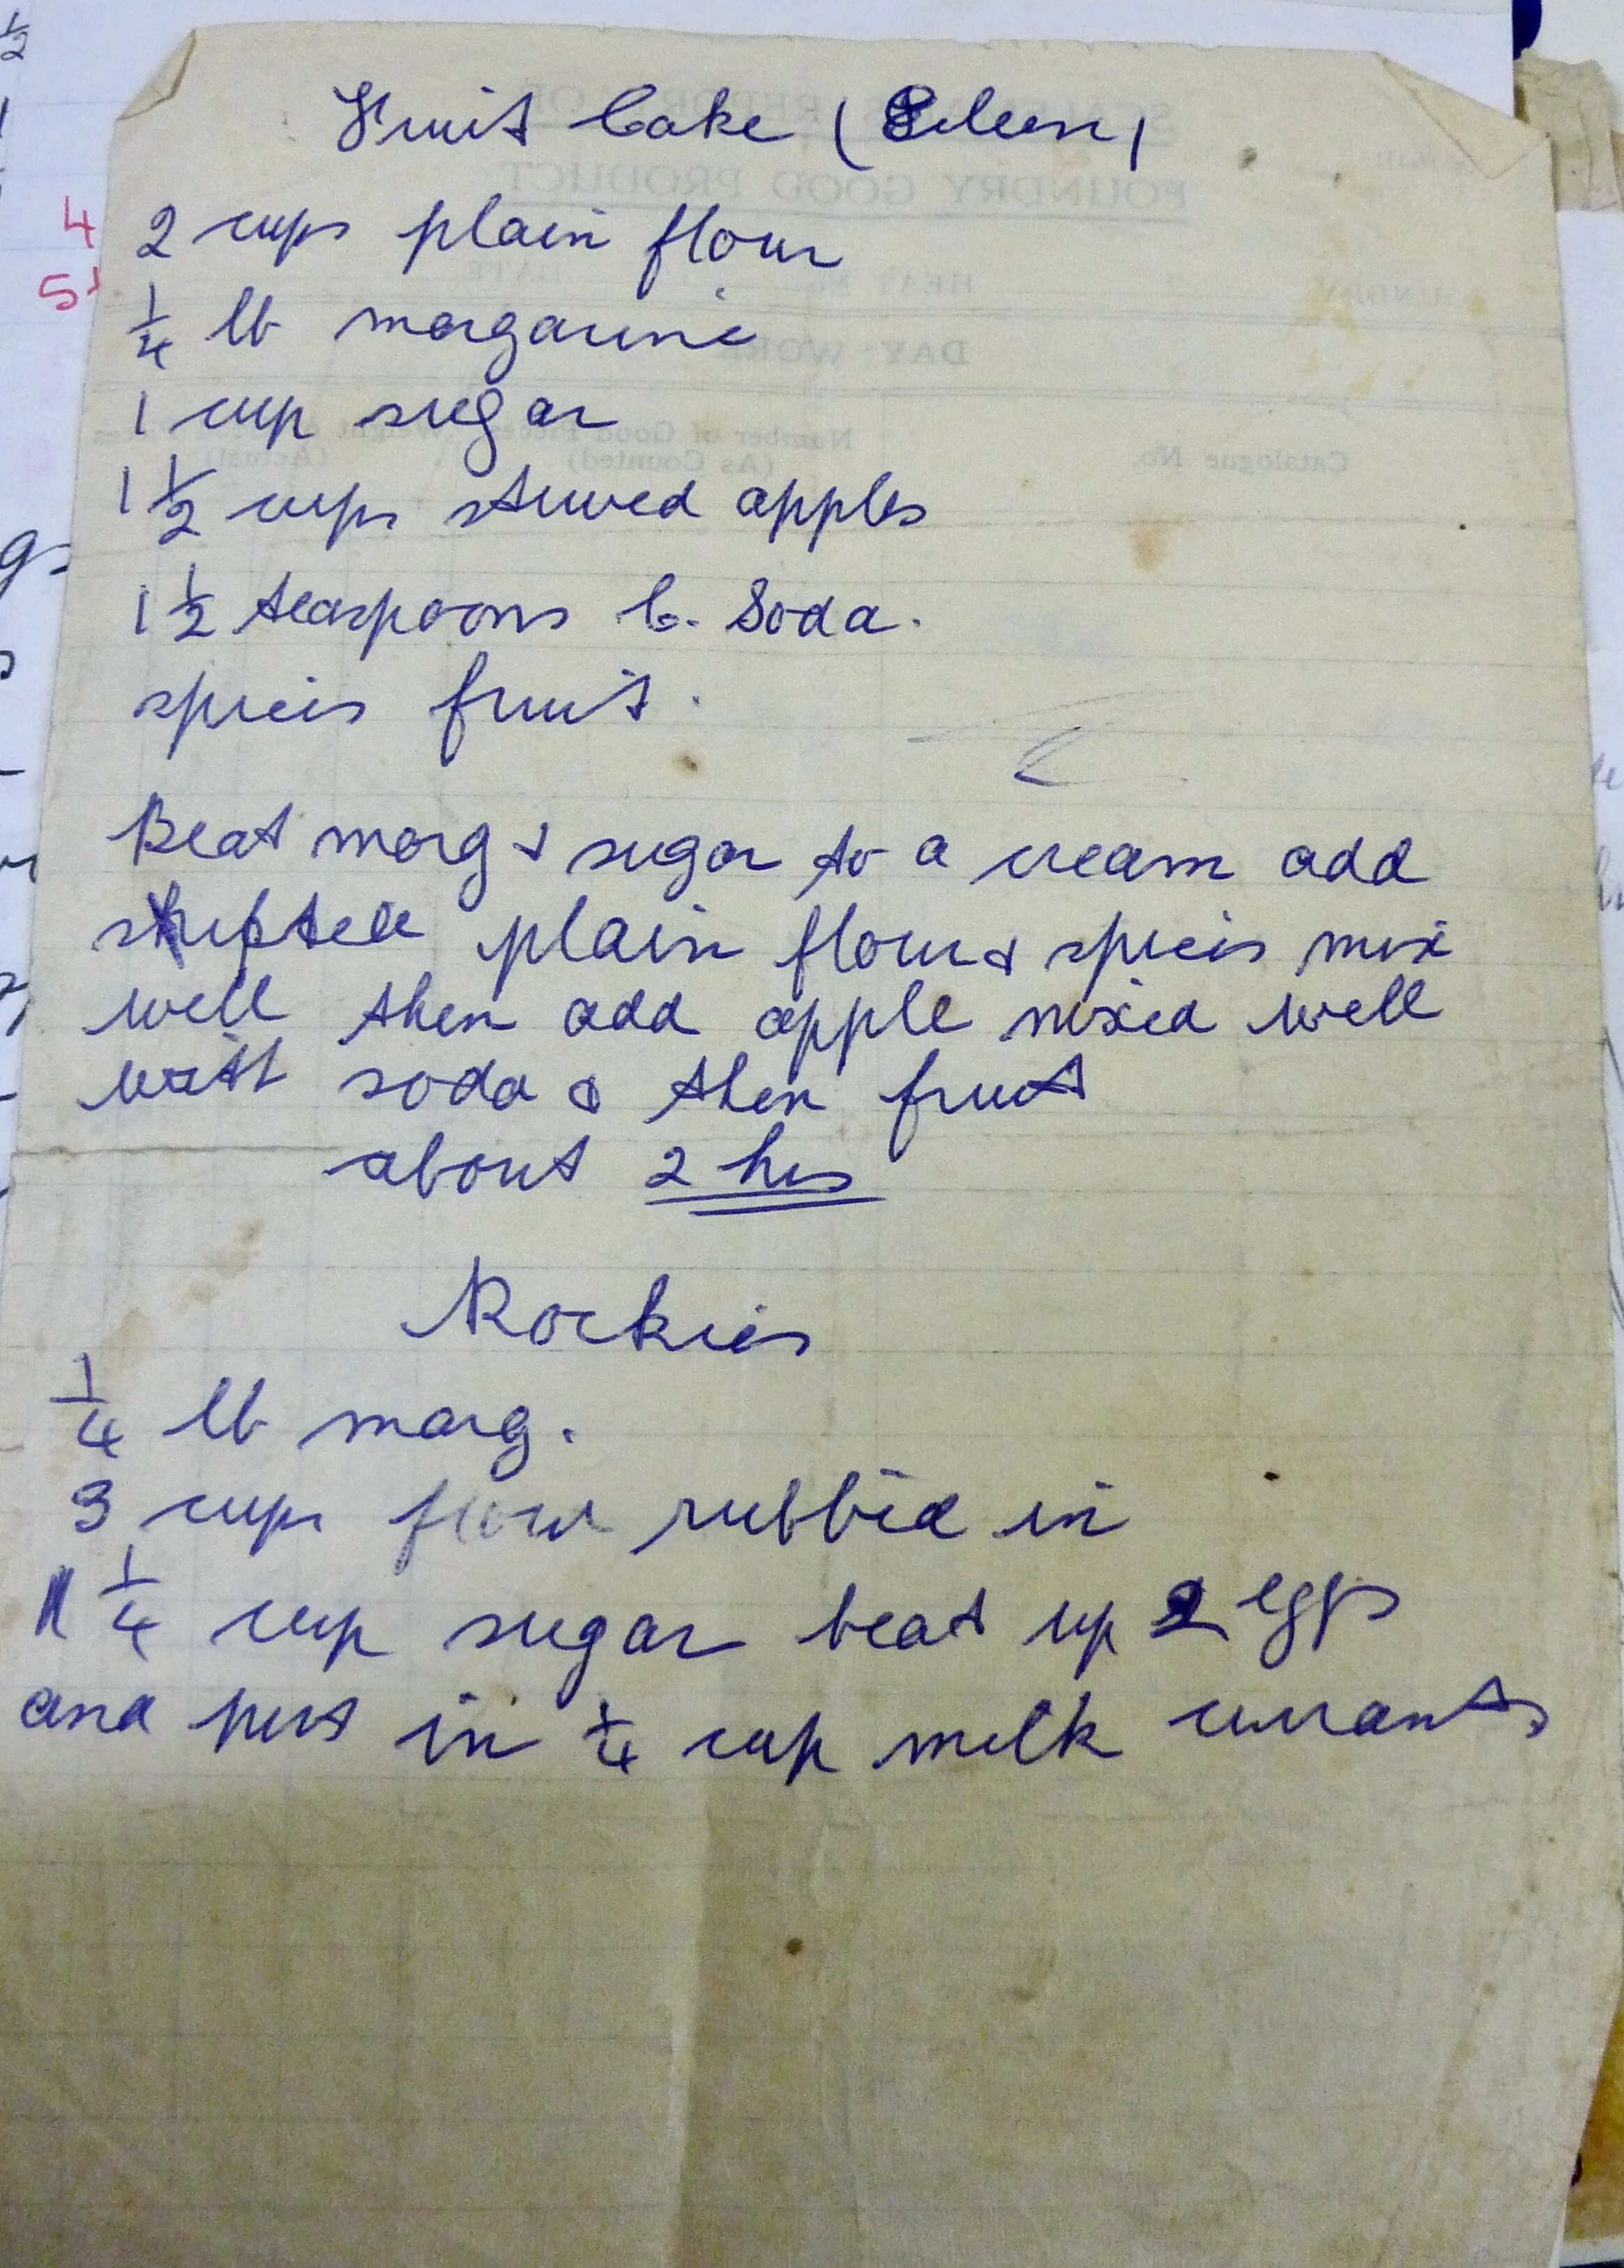 Fruit Cake (Eileen)
4 2 cups plain flour
5
1/4 lb margarine
1 cup sugar
1 1/2 cups stewed apples
1 1/2 teaspoons C. Soda.
spices fruit.
Beat marg & sugar to a cream add
plain flour & spices mix
well then add apple mixed well
with soda & then fruit
about 2 hrs
Rockies
1/4 lb marg.
3 cups flour rubbed in
1/4 cup sugar beat up 2 eggs
and put in 1/4 cup milk currants
FOUNDRY GOOD PRODUCT
HEAT No. DATE
DAY WORK
Catalogue No. Number of Good Pieces Weight
(As Counted) (Actual)